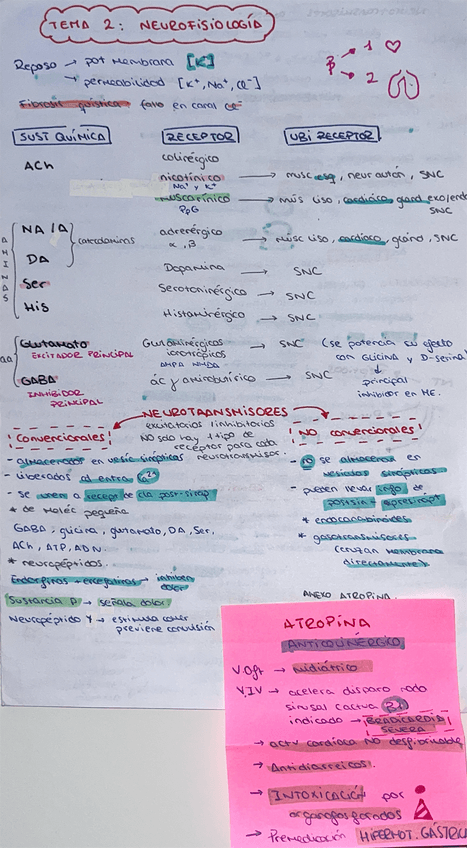 TEMA 2: NEUROFISIOLOGÍA
Reposo → pot Membrana [K]
→ permeabilidad [K+, Na+, Cl-]
β → 1
→ 2
Fibrosis quística fallo en canal Cl-
SUST QUÍMICA RECEPTOR UBI RECEPTOR
ACh colinérgico
nicotínico → musc esq, neur autón, SNC
Na+ y K+
muscarínico → mús liso, cardíaco, gland exo/endo
PpG SNC
AMINAS
NA / A catecolaminas adrenérgico → músc liso, cardíaco, gland, SNC
α, β
DA Dopamina → SNC
Ser Serotoninérgico → SNC
His Histaminérgico → SNC
aa
Glutamato → SNC (se potencia su efecto
EXCITADOR PRINCIPAL ionotrópicos con GLICINA y D-serina)
AMPA NMDA
GABA ác γ aminobutírico → SNC principal
INHIBIDOR inhibidor en ME.
PRINCIPAL
NEUROTRANSMISORES
excitatorios | inhibitorios
NO solo hay 1 tipo de
receptor para cada
neurotransmisor.
CONVENCIONALES
- almacenados en vesíc sinápticas
- liberados al entrar Ca2+
- se unen a recept de cla post-sinap
* de Moléc pequeña
GABA, glicina, glutamato, DA, Ser,
ACh, ATP, ADN.
* neuropéptidos.
Endorfinas + encefalinas → inhiben
dolor
Sustancia P → señala dolor
Neuropéptido Y → estimula comer
previene convulsión
NO CONVENCIONALES
- NO se almacena en
vesículas sinápticas
- pueden llevar info de
postsin → a presinápt
* endocanabinoides
* gasotransmisores
(cruzan membrana
directamente)
ANEXO ATROPINA.
ATROPINA
ANTICOLINÉRGICO
V.Oft → midiátrico
V.IV → acelera disparo nodo
sinusal
indicado → BRADICARDIA
SEVERA
→ actv cardíaca NO desfibrilable
→ Antidiarreicos.
→ INTOXICACIÓN por
organofosforados
→ Premedicación HIPERMOT. GÁSTRICA